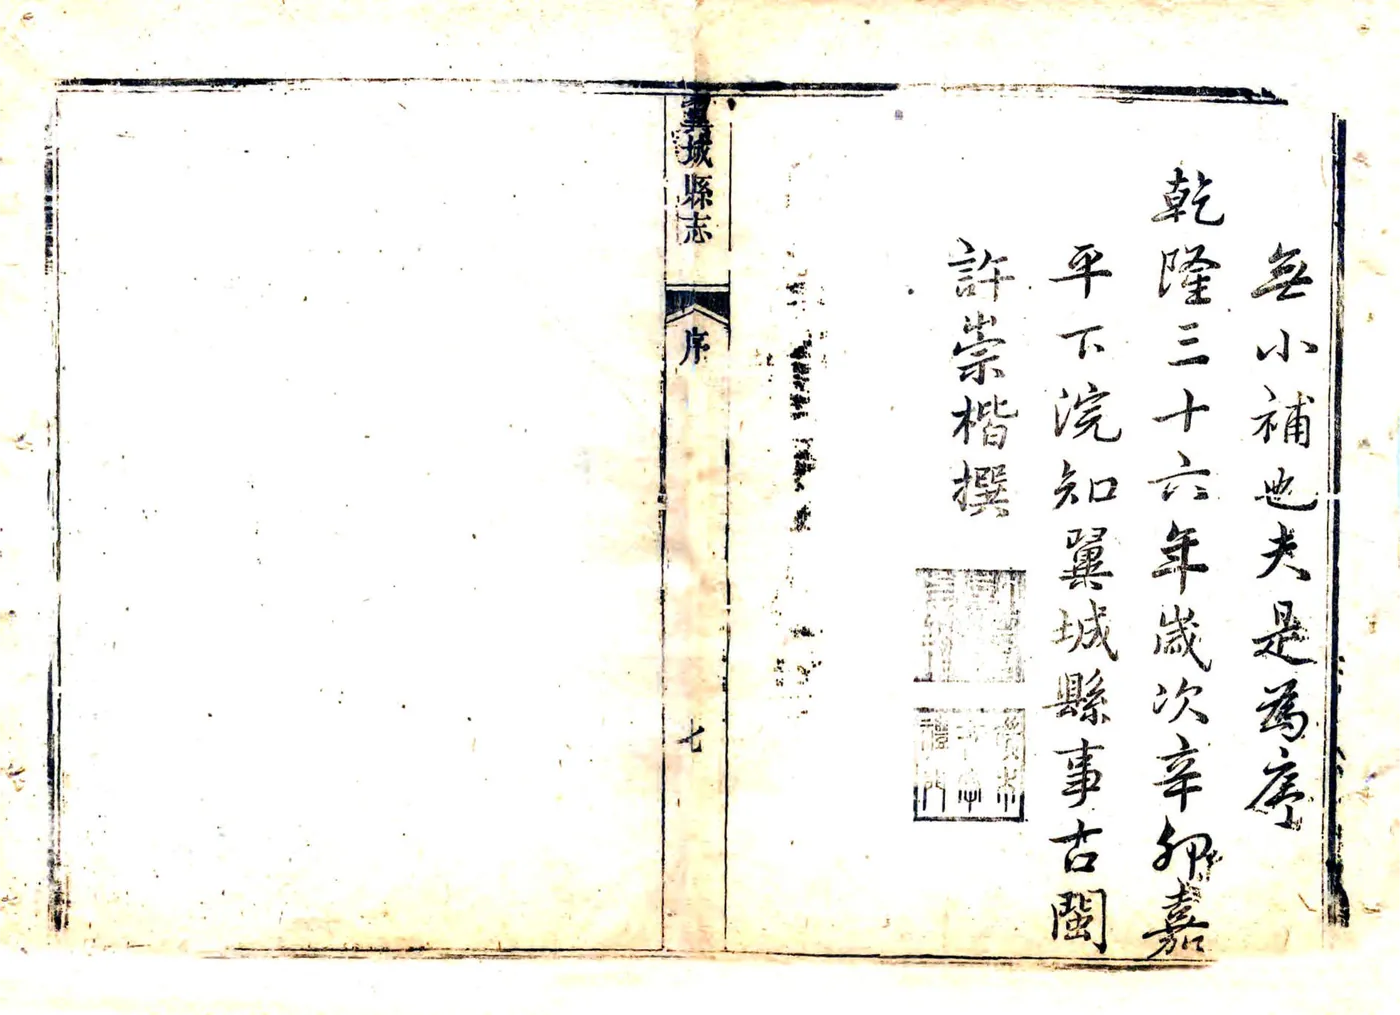 無小補也夫是為序
乾隆三十六年歲次辛卯嘉
平下浣知翼城縣事古閩
許崇楷撰
翼城縣志
序
七